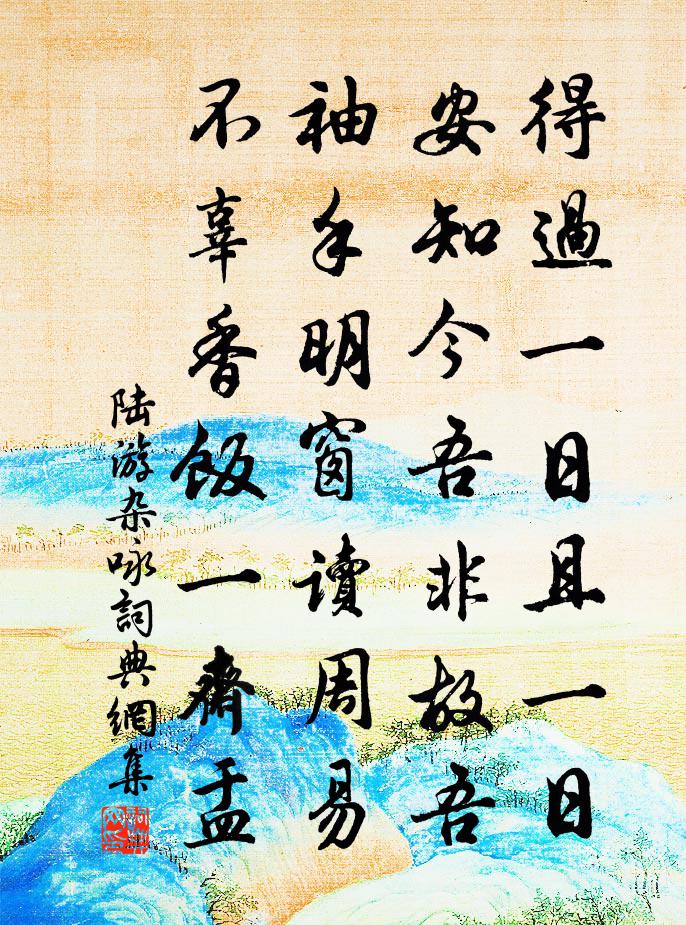 得過一日且一日
安知今吾非故吾
袖手明窗讀周易
不辜香飯一齋盂
陆游杂咏詞典網集